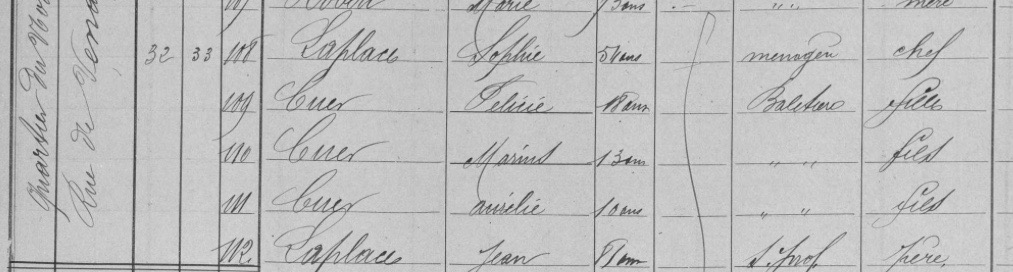 Quartier du
Rue de
109 Marie 73 ans - " " mère
32 33 108 Laplace Sophie 54 ans menagère chef
109 Cuer Felicie 18 ans fille
110 Cuer Marius 13 ans " " fils
111 Cuer aurélie 10 ans " " fils
112. Laplace Jean 81 ans S. Prof. père